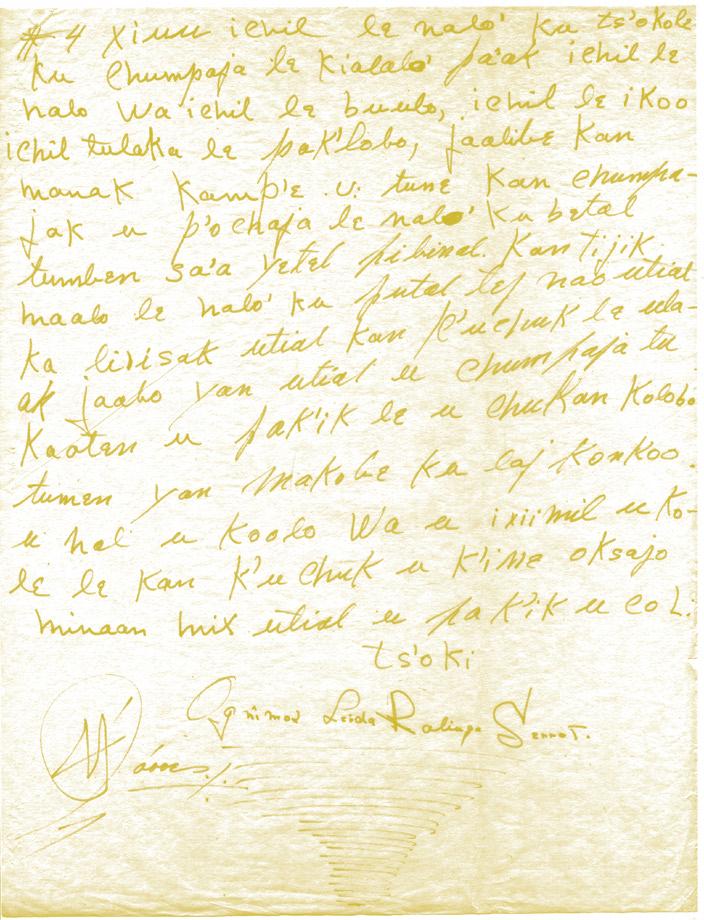 # 4 xiuu ichil le nalo' ku ts'okole
ku chumpaja le kialalo' pa'ak ichil le
nalo wa ichil le buulo, ichil le ikoo
ichil tulaka le pak'lobo, jaalibe kan
manak kamp'e u: tune kan chumpa-
jak u p'ochaja le nalo' ku betal
tumben sa'a yetel pibinal. Kan tijik
maalo le nalo' ku putal tej nao utial
ka livisak utial kan k'uchuk le ula-
ak jaabo yan utial u chumpaja tu
Kaaten u pak'ik le u chukan kolobo
tumen yan makobe ka laj konkoo.
u nal u koolo wa u ixiimil u ko-
le le kan k'uchuk u k'iine oksajo
minaan mix utial u pak'ik u coL.
ts'oki
Leida Sennot.